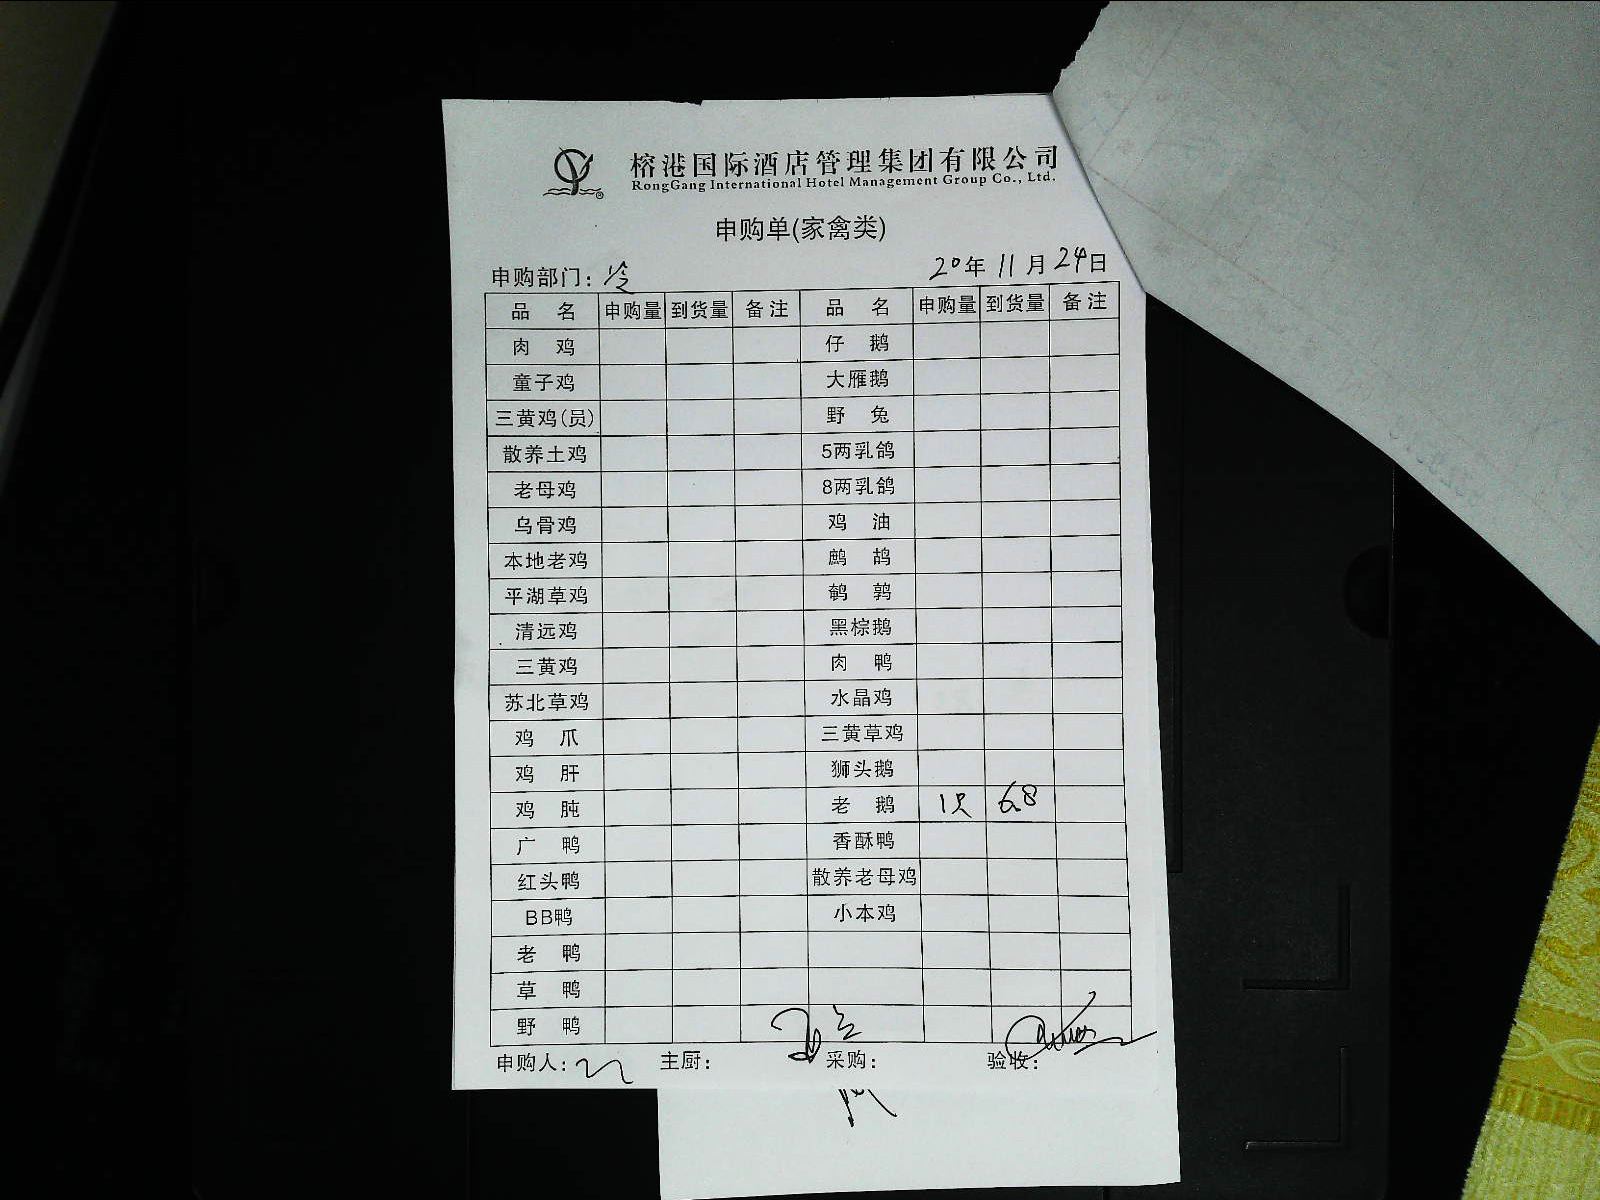 榕港国际酒店管理集团有限公司
RongGang International Hotel Management Group Co., Ltd.
申购单(家禽类)
申购部门: 冷 20年 11月 24日
品 名 申购量 到货量 备注 品 名 申购量 到货量 备注
肉 鸡 仔 鹅
童子鸡 大雁鹅
三黄鸡(员) 野 兔
散养土鸡 5两乳鸽
老母鸡 8两乳鸽
乌骨鸡 鸡 油
本地老鸡 鹧 鸪
平湖草鸡 鹌 鹑
清远鸡 黑棕鹅
三黄鸡 肉 鸭
苏北草鸡 水晶鸡
鸡 爪 三黄草鸡
鸡 肝 狮头鹅
鸡 肫 老 鹅 1只 6.8
广 鸭 香酥鸭
红头鸭 散养老母鸡
BB鸭 小本鸡
老 鸭
草 鸭
野 鸭
申购人: 主厨: 采购: 验收: